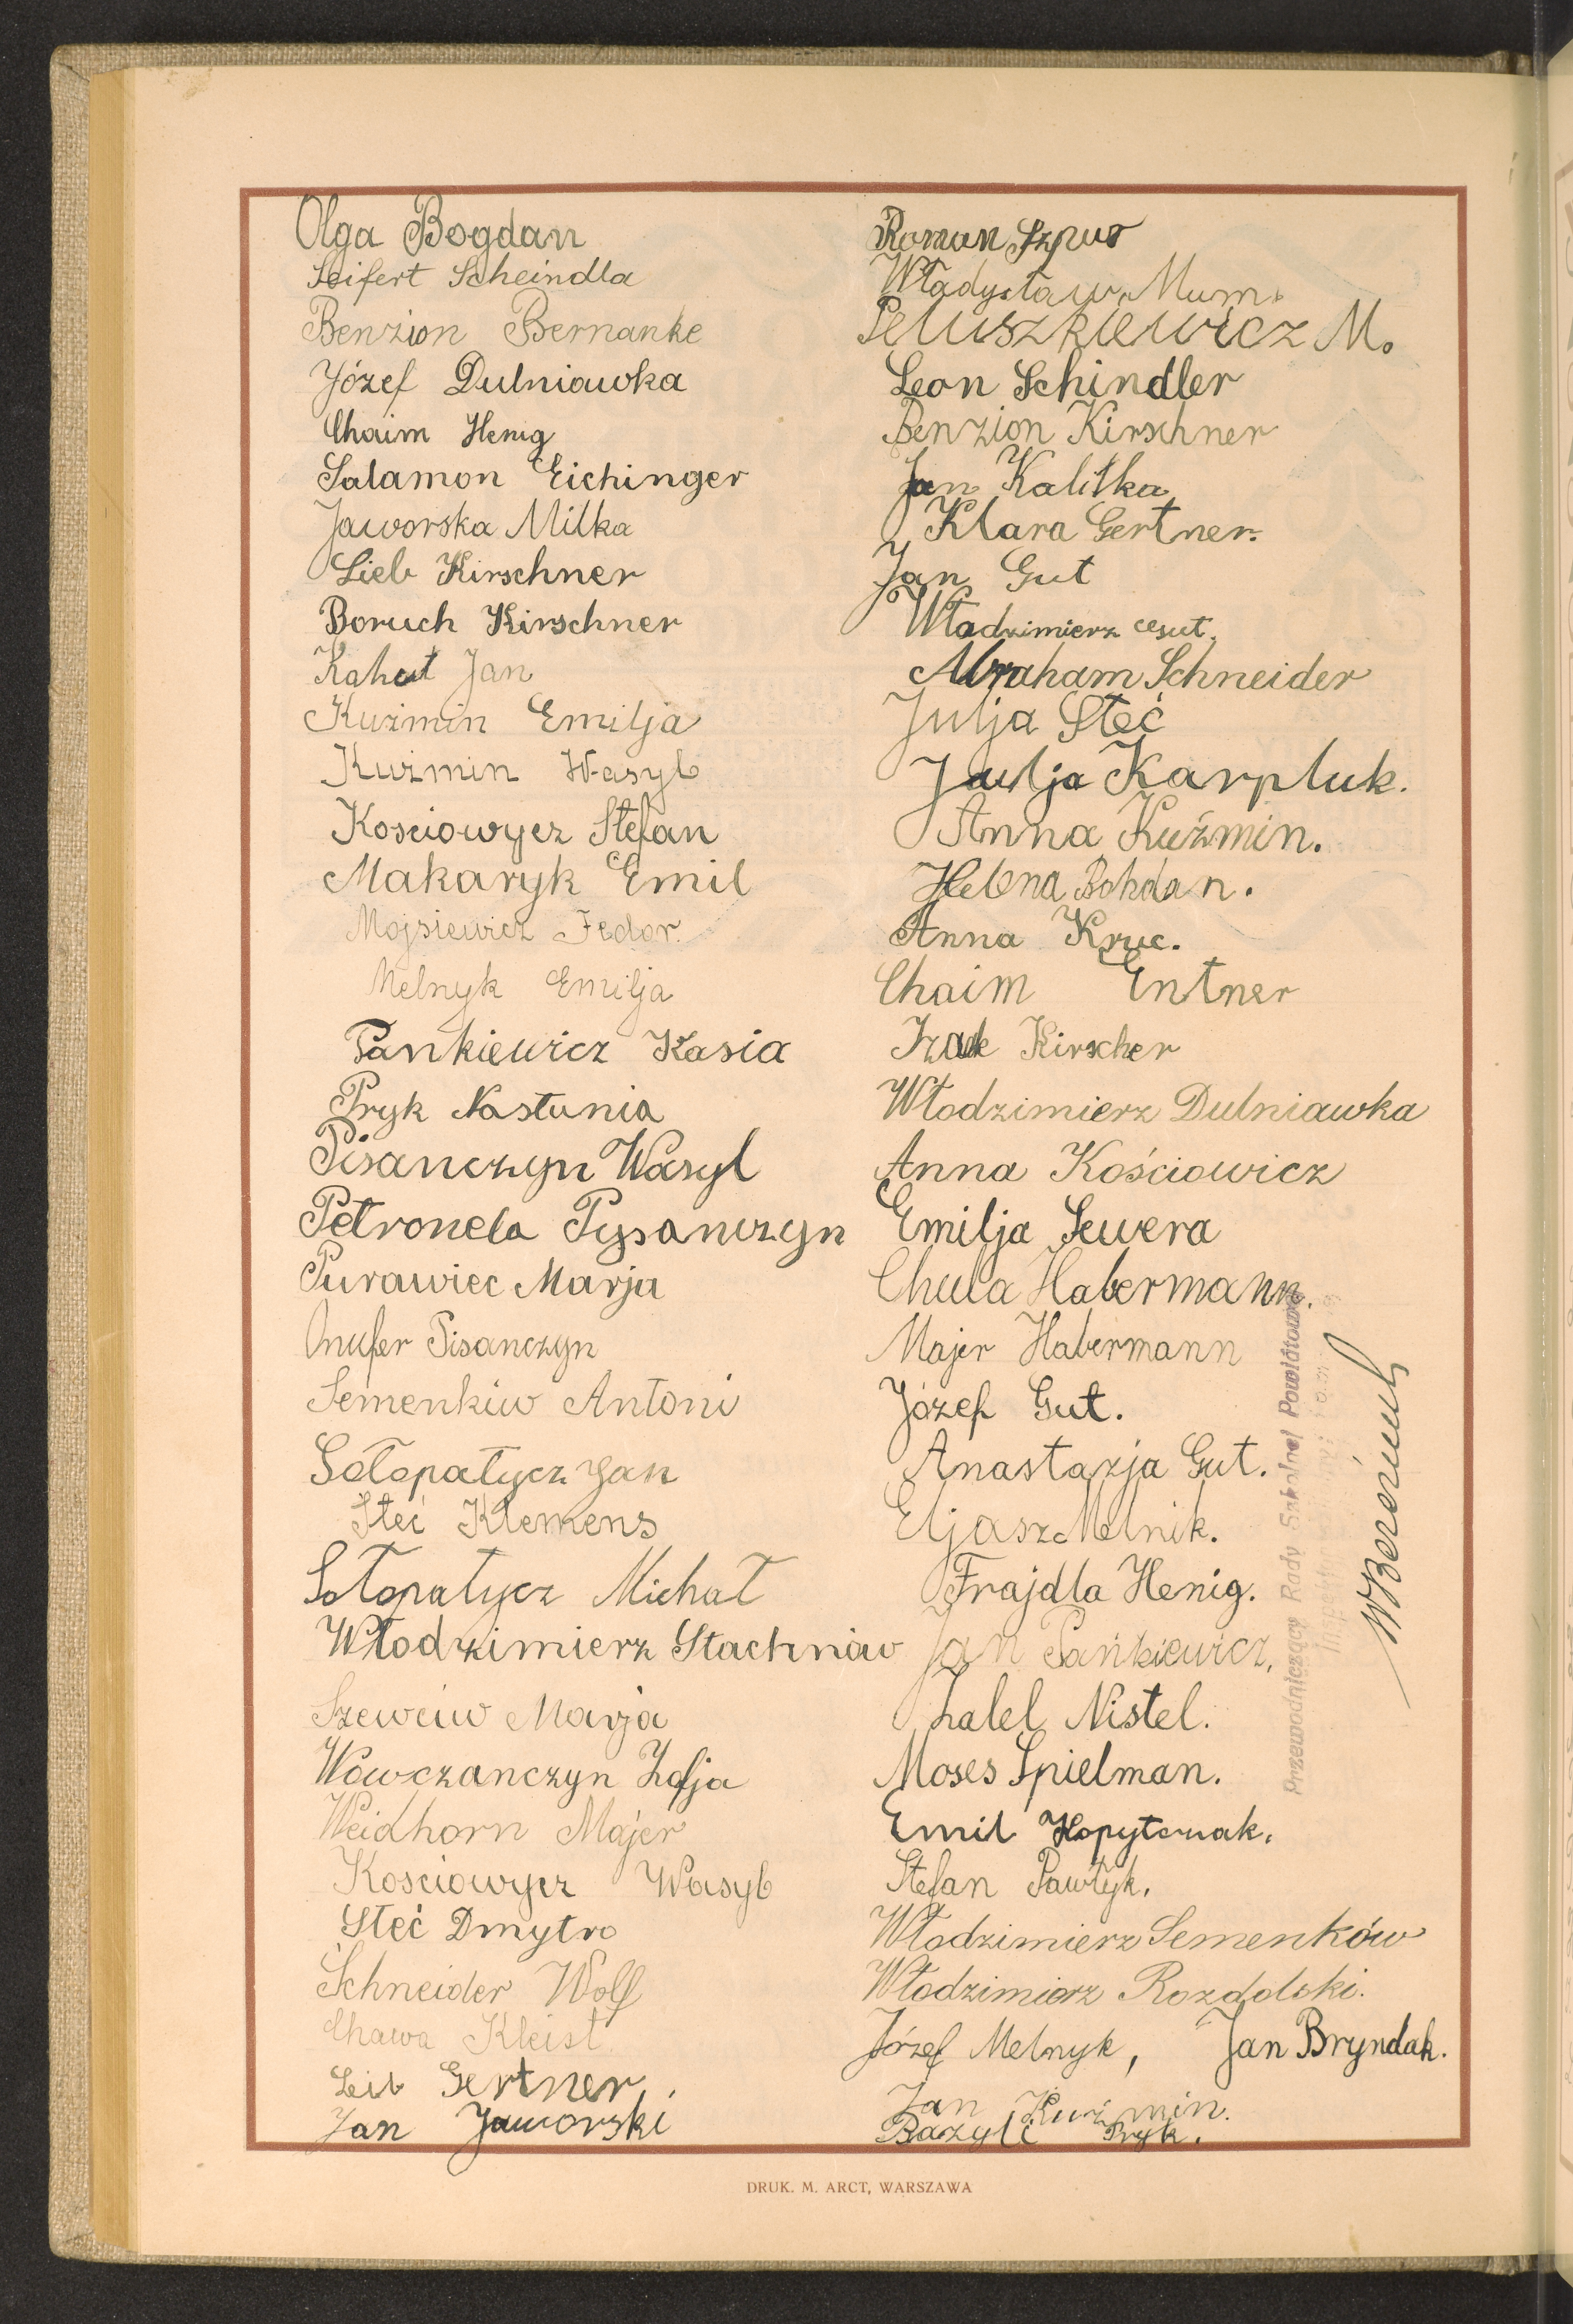 Olga Bogdan
Seifert Scheindla
Benzion Bernanke
Józef Dulniawka
Chaim Henig
Salamon Eichinger
Jaworska Milka
Lieb Kirschner
Boruch Kirschner
Kahut Jan
Kuźmin Emilja
Kuźmin Wasyl
Kosciowycz Stefan
Makaryk Emil
Mojsiewicz Fedor.
Melnyk Emilja
Pankiewicz Kasia
Pryk Nastunia
Pisanczyn Wasyl
Petronela Pysanczyn
Purawiec Marja
Onufer Pisanczyn
Semenkiw Antoni
Sołopatycz Jan
Steć Klemens
Sołopatycz Michał
Włodzimierz Stachniw
Szewciw Marja
Wowczanczyn Zofja
Weidhorn Majer
Kosciowycz Wasyl
Steć Dmytro
Schneider Wolf
Chawa Kleist
Leib Gertner
Jan Jaworski
Roman Szpur
Władysław Mum.
Peluszkiewicz M.
Leon Schindler
Benzion Kirschner
Jan Kalitka
Klara Gertner.
Jan Gut
Włodzimierz Gut.
Abraham Schneider
Julja Steć
Julja Karpluk.
Anna Kuźmin.
Helena Bohdan.
Anna Kruc.
Chaim Entner
Izaak Kirscher
Włodzimierz Dulniawka
Anna Kościowicz
Emilja Sewera
Chula Habermann.
Majer Habermann
Józef Gut.
Anastazja Gut.
Eljasz Melnik.
Frajdla Henig.
Jan Pańkiewicz.
Lalel Nistel.
Moses Spielman.
Emil Kopytczak.
Stefan Pawłyk.
Włodzimierz Semenków
Włodzimierz Rozdolski.
Józef Melnyk, Jan Bryndak.
Jan Kuźmin.
Bazyli Pryk.
Przewodniczący Rady Szkolnej Powiatowej
DRUK. M. ARCT, WARSZAWA